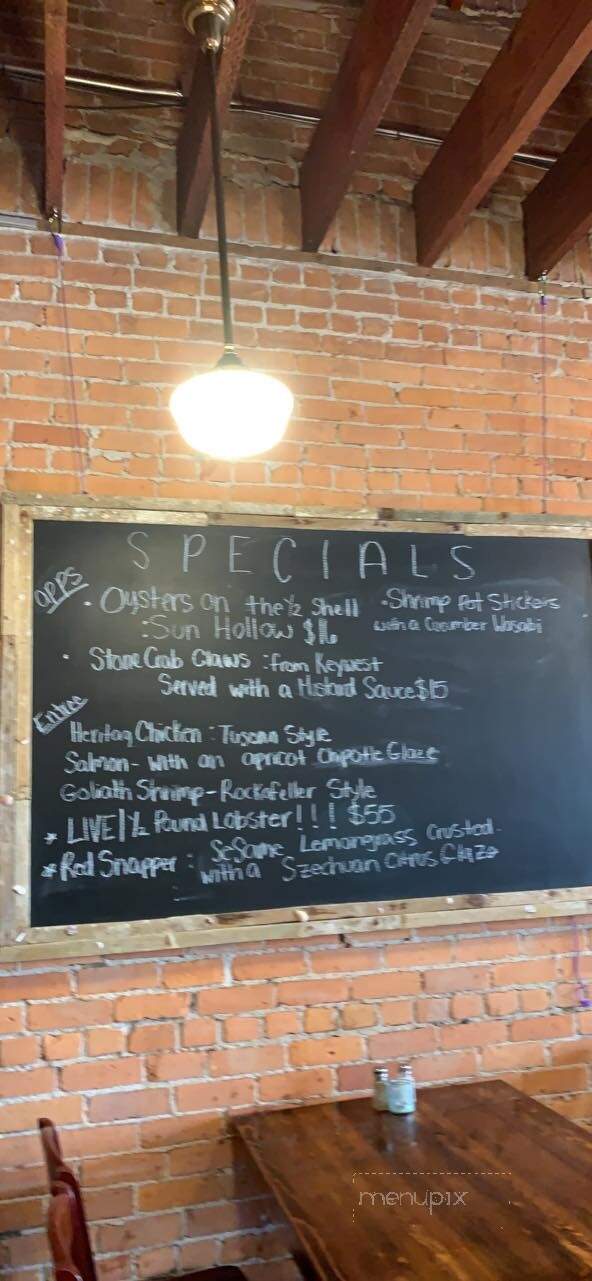 SPECIALS
apps
• Oysters on the ½ Shell
: Sun Hollow $16
• Shrimp Pot Stickers
with a Cucumber Wasabi
• Stone Crab Claws : from Keywest
Served with a Mustard Sauce $15
Entree
Heritag Chicken : Tuscan Style
Salmon - with an apricot Chipotle Glaze
Goliath Shrimp - Rockafeller Style
* LIVE 1 ½ Pound Lobster!!! $55
* Red Snapper : SeSame Lemongrass Crusted
with a Szechuan Citrus Glaze
menupix